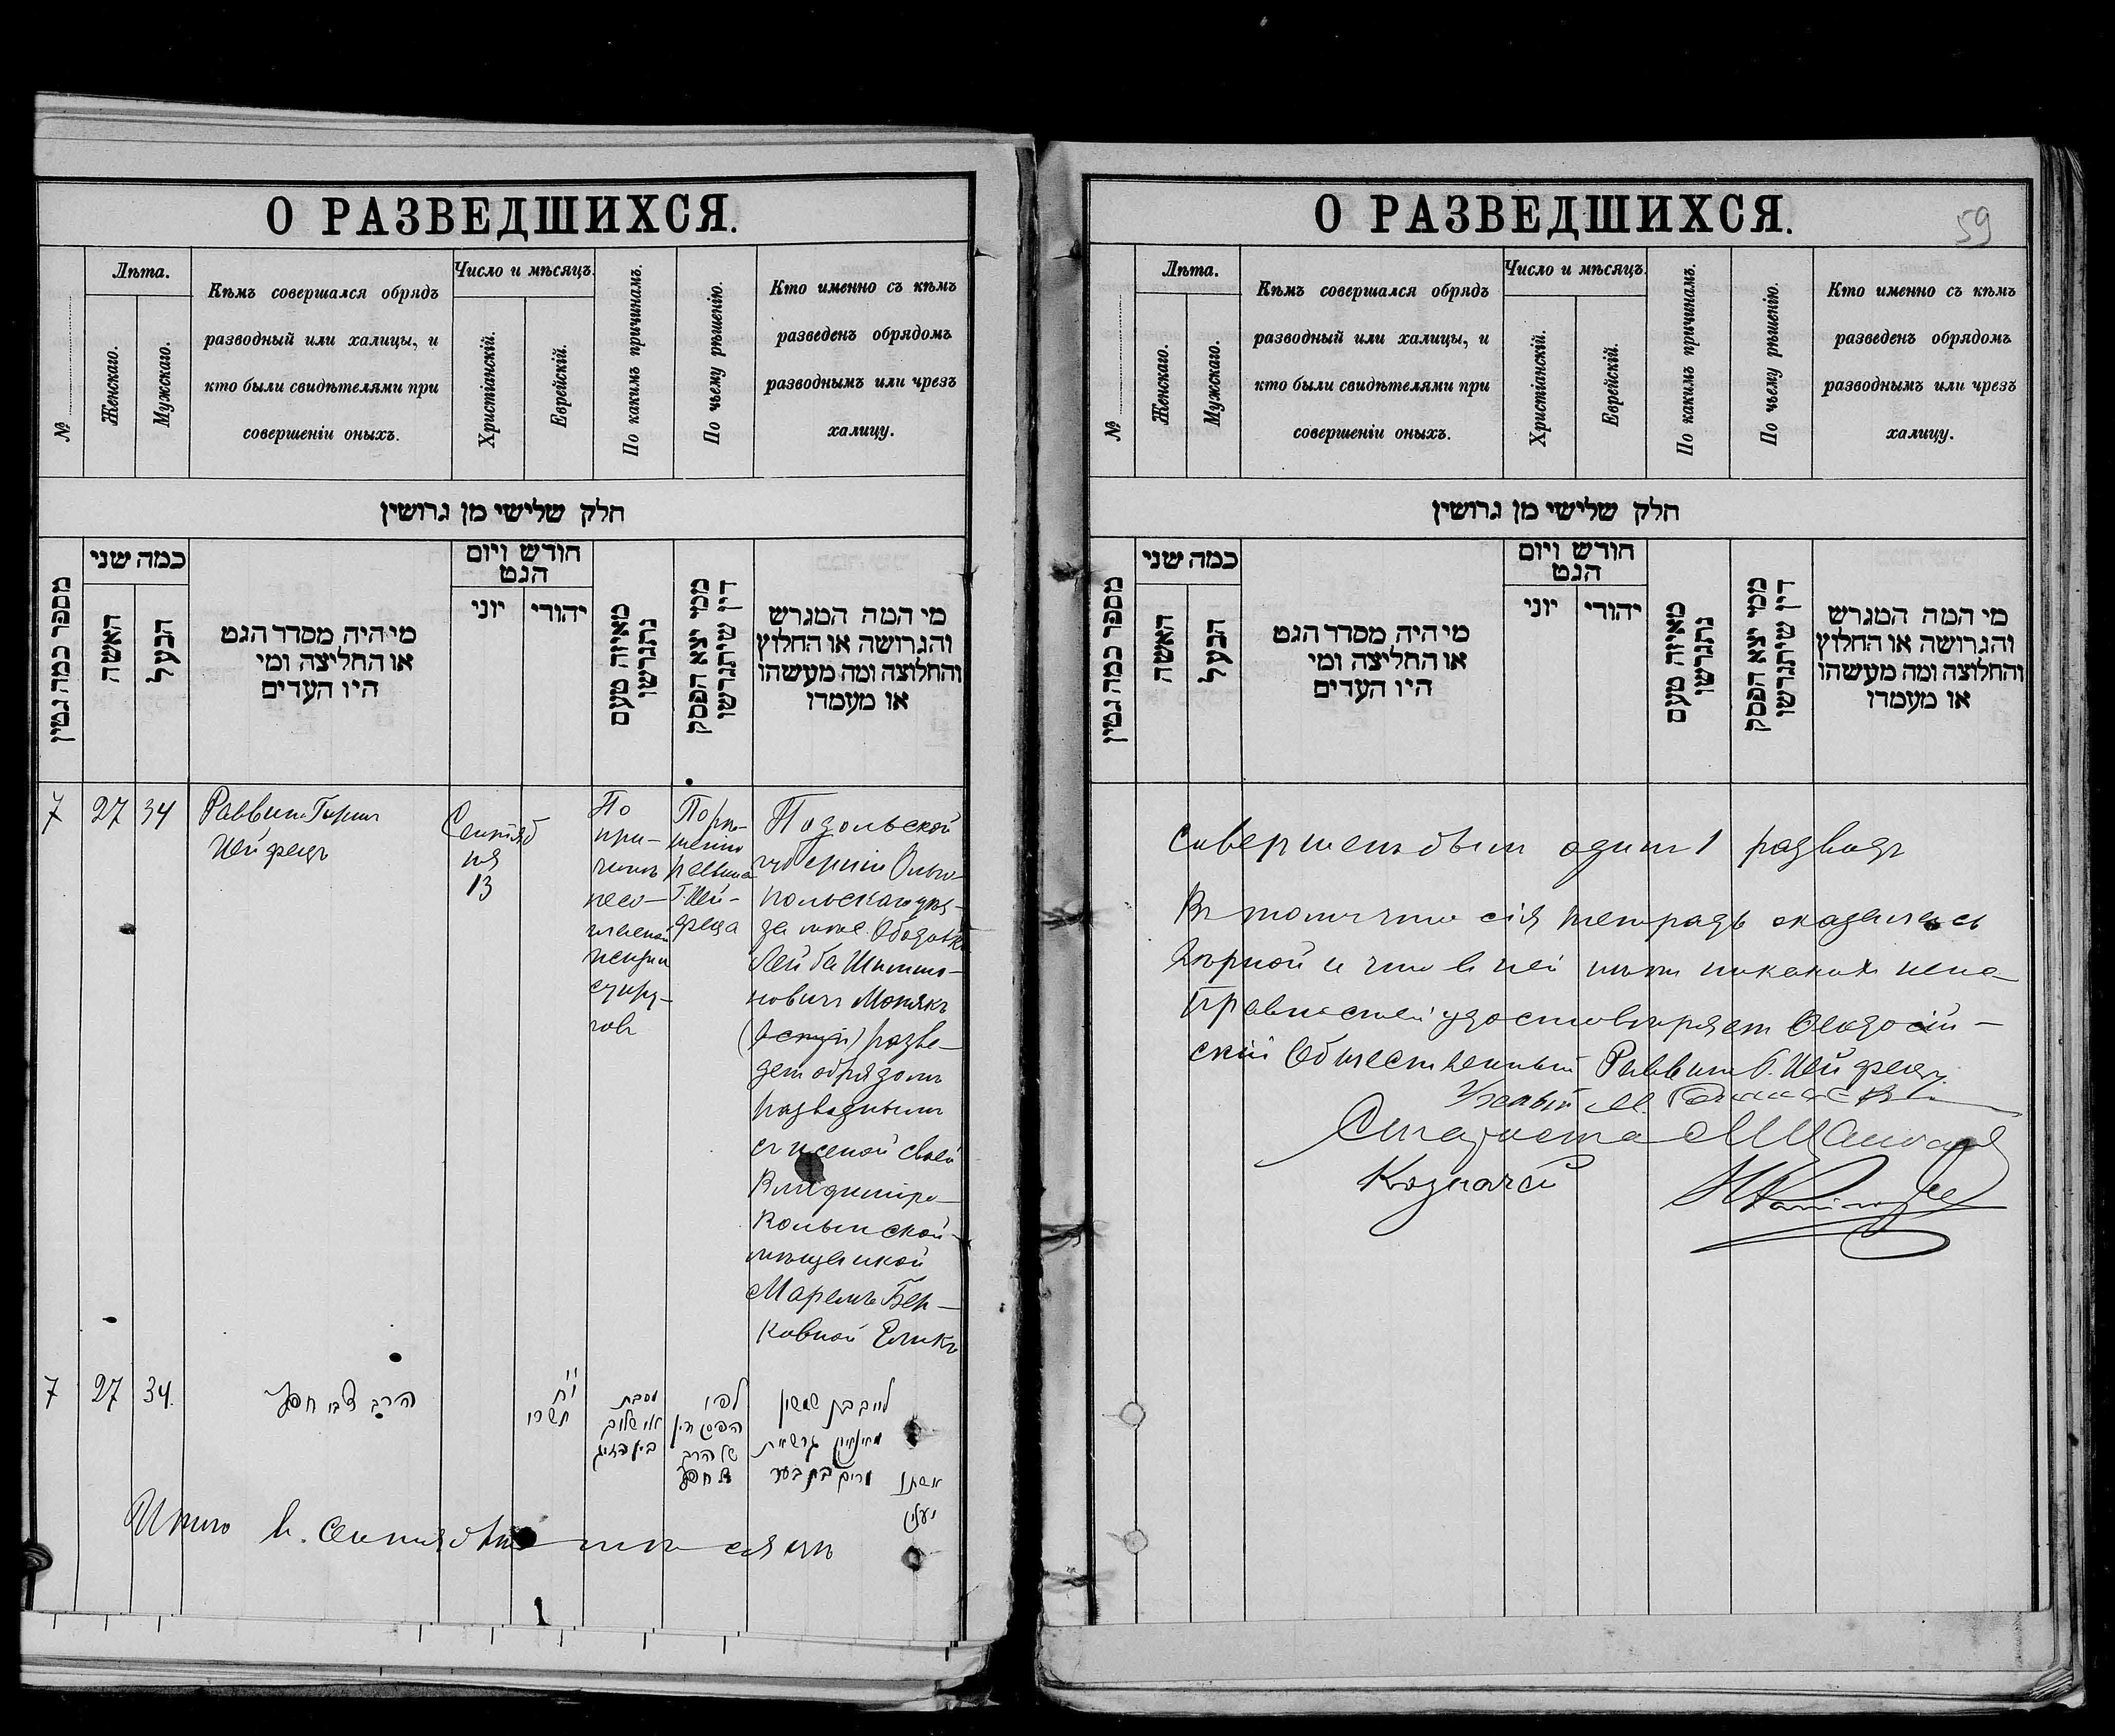 О РАЗВЕДШИХСЯ.
№
Лѣта.
Женскаго.
Мужскаго.
Кѣмъ совершался обрядъ
разводный или халицы, и
кто были свидѣтелями при
совершеніи оныхъ.
Число и мѣсяцъ.
Христіанскій.
Еврейскій.
По какимъ причинамъ.
По чьему рѣшенію.
Кто именно съ кѣмъ
разведенъ обрядомъ
разводнымъ или чрезъ
халицу.
חלק שלישי מן גרושין
מספר כמה גטין
כמה שני
האשה
הבעל
מי היה מסדר הגט
או החליצה ומי
היו העדים
חודש ויום
הגט
יוני
יהודי
מאיזה טעם
נתגרשו
ממי יצא הפסק
דין שיתגרשו
מי המה המגרש
והגרושה או החלוץ
והחלוצה ומה מעשהו
או מעמדו
7
27
34
Раввинъ
Сентяб
ря
13
По
при-
чинѣ
несо-
гласной
жизни
супру-
говъ
По рѣ-
шенію
раввина
Подольской
губерніи Ольго-
польскаго уѣз-
да
Лейба
разве-
денъ обрядомъ
разводнымъ
съ женой своей
Владиміро-
Волынской
мѣщанкой
Бер-
ковной
7
27
34.
הרב
י״ח
תשרי
מסבת
לפי
הפסק דין
של הרב
אשתו
Итого въ Сентябрѣ мѣсяцѣ
О РАЗВЕДШИХСЯ.
59
№
Лѣта.
Женскаго.
Мужскаго.
Кѣмъ совершался обрядъ
разводный или халицы, и
кто были свидѣтелями при
совершеніи оныхъ.
Число и мѣсяцъ.
Христіанскій.
Еврейскій.
По какимъ причинамъ.
По чьему рѣшенію.
Кто именно съ кѣмъ
разведенъ обрядомъ
разводнымъ или чрезъ
халицу.
חלק שלישי מן גרושין
מספר כמה גטין
כמה שני
האשה
הבעל
מי היה מסדר הגט
או החליצה ומי
היו העדים
חודש ויום
הגט
יוני
יהודי
מאיזה טעם
נתגרשו
ממי יצא הפסק
דין שיתגרשו
מי המה המגרש
והגרושה או החלוץ
והחלוצה ומה מעשהו
או מעמדו
Совершенъ былъ одинъ 1 разводъ
Въ томъ что сія тетрадь оказалась
вѣрной и что в ней нѣтъ никакихъ неис
правностей удостовѣряетъ Ѳеодосій-
скій Общественный Раввинъ
Ученый М.
Староста
Казначей